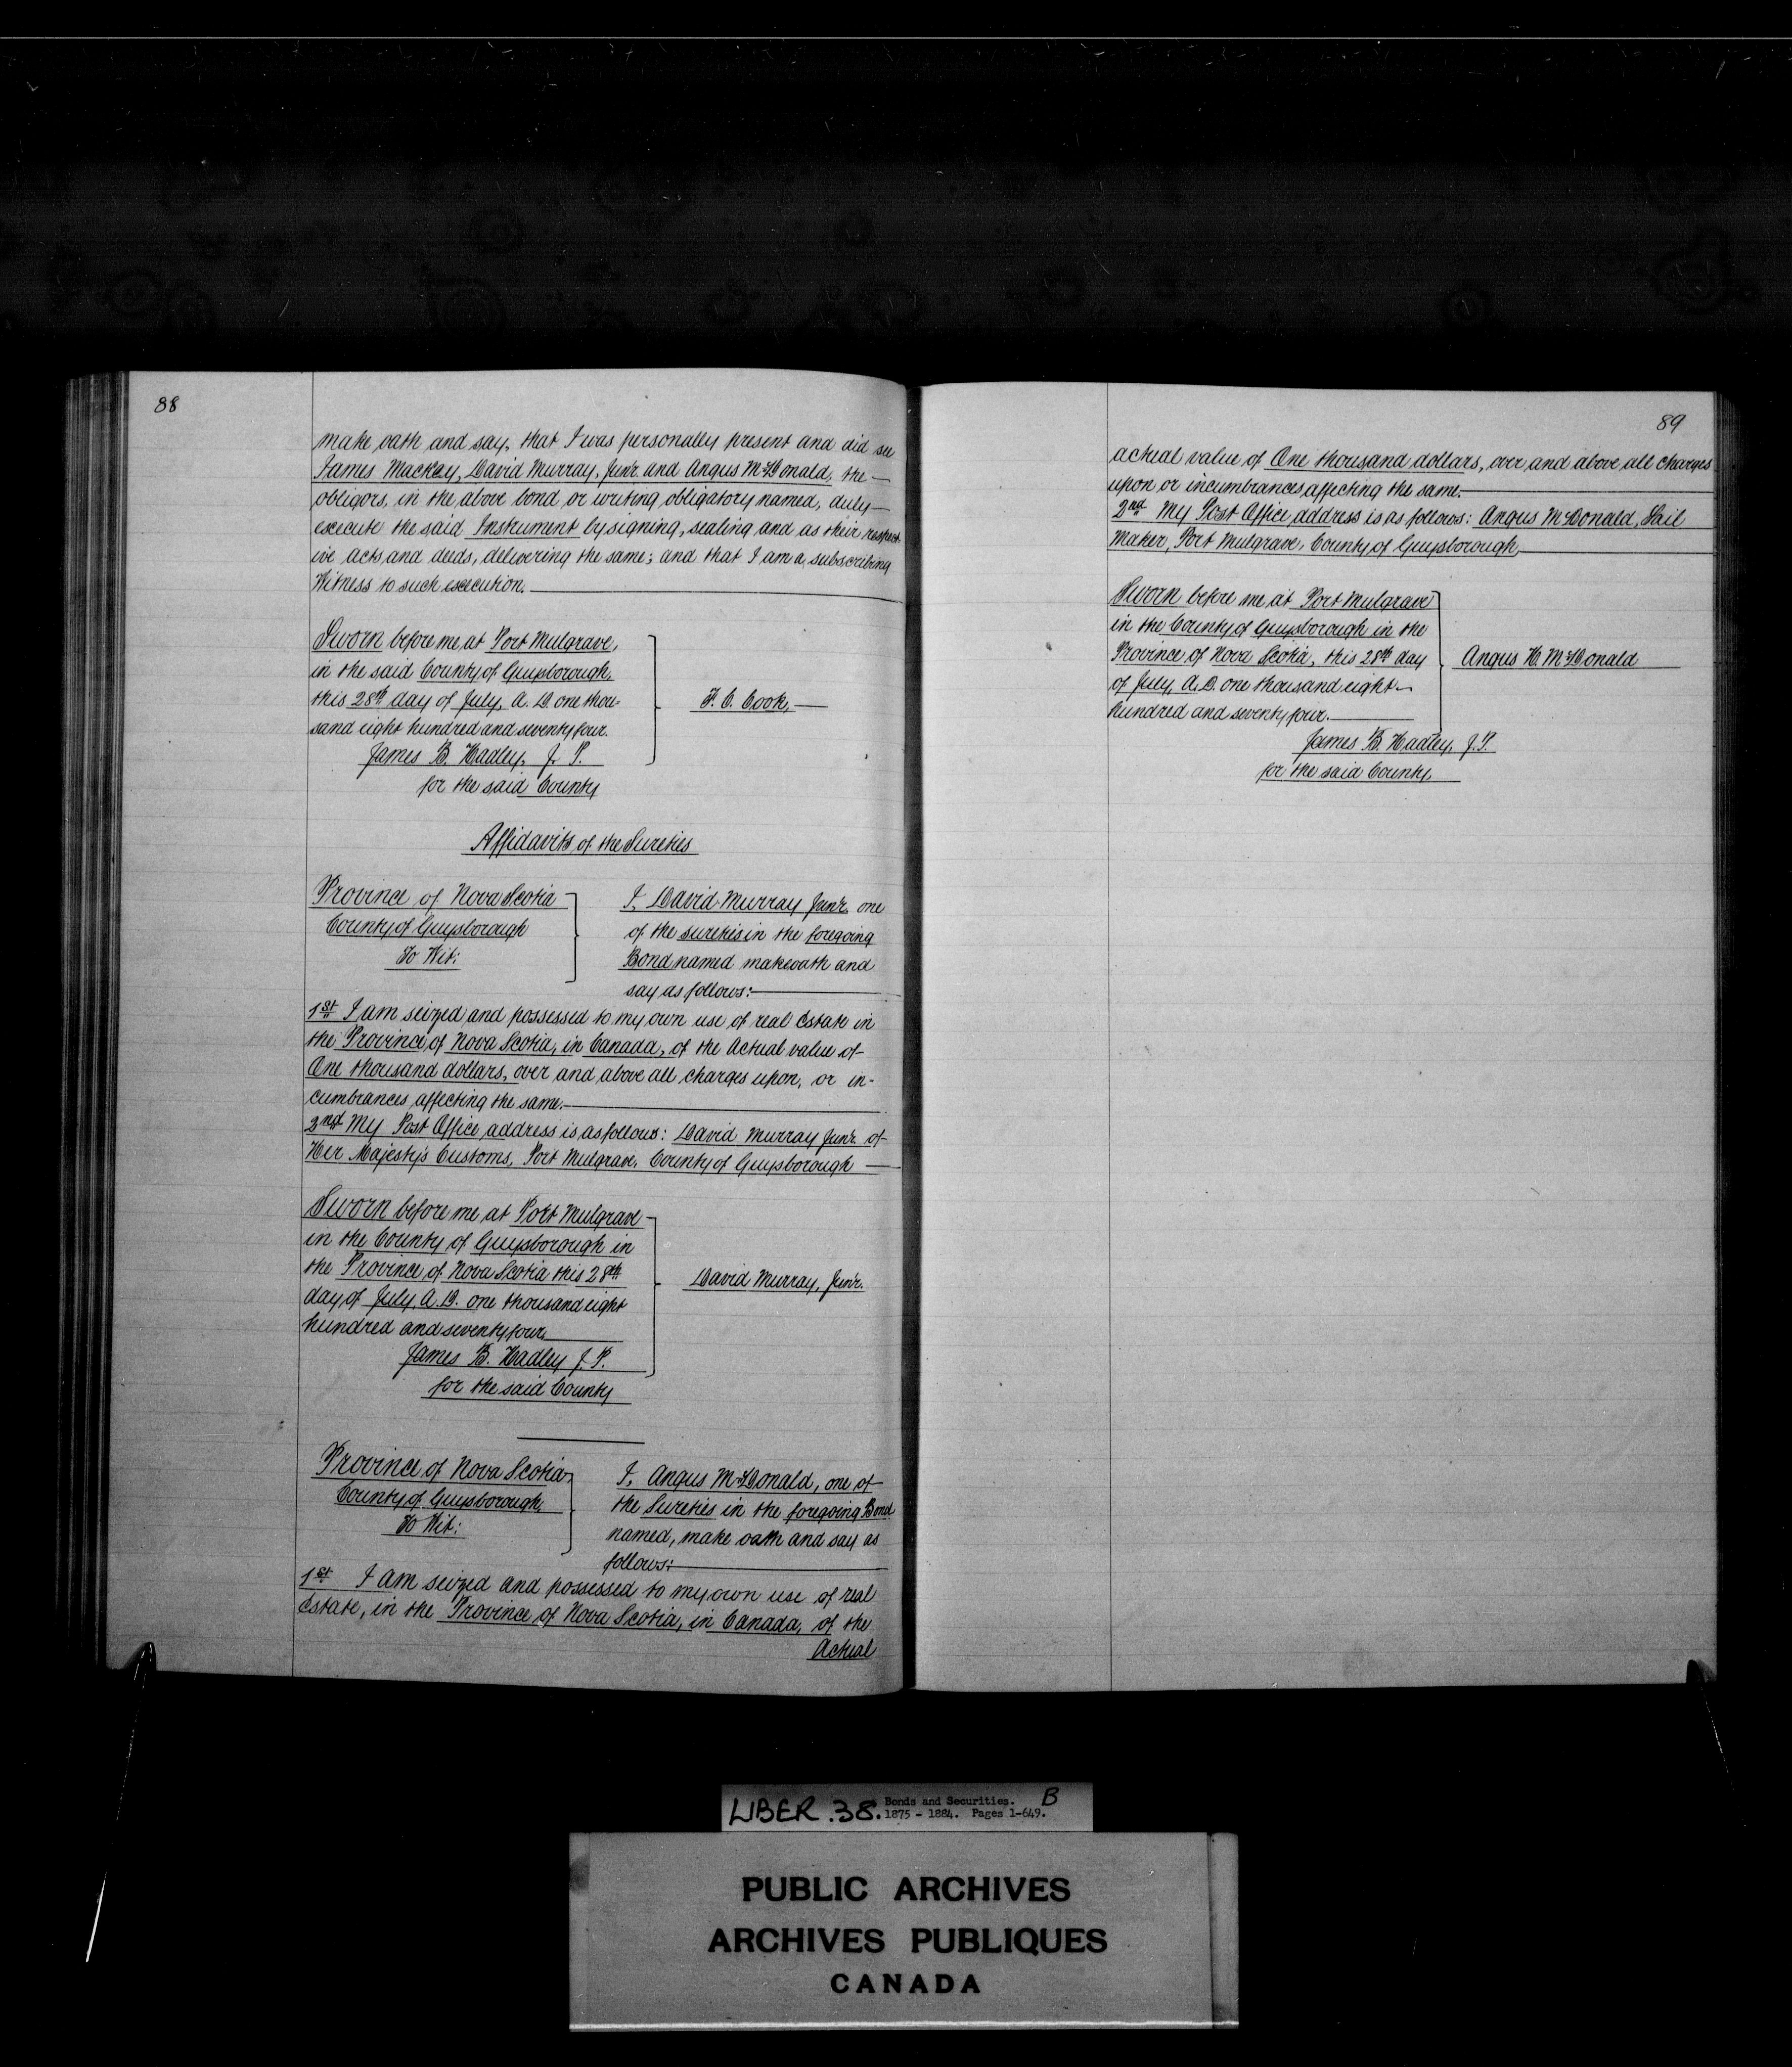 88
make oath and say, that I was personally present and did see
James Mackay, David Murray, Jun'r. and Angus McDonald, the
obligors, in the above bond or writing obligatory named, duly
execute the said Instrument by signing, sealing and as their respect-
ive acts and deeds, delivering the same; and that I am a subscribing
Witness to such execution.
Sworn before me at Port Mulgrave,
in the said County of Guysborough,
this 28th day of July, A. D. one thou-
sand eight hundred and seventy four.
James B. Hadley, J. P.
for the said County
F. C. Cook,
Affidavits of the Sureties
Province of Nova Scotia
County of Guysborough
To Wit:
I, David Murray Jun'r, one
of the sureties in the foregoing
Bond named make oath and
say as follows:
1st I am seized and possessed to my own use of real Estate in
the Province of Nova Scotia, in Canada, of the Actual value of
One thousand dollars, over and above all charges upon, or in-
cumbrances affecting the same.
2nd My Post Office address is as follows: David Murray Jun'r. of
Her Majesty's Customs, Port Mulgrave, County of Guysborough
Sworn before me at Port Mulgrave
in the County of Guysborough in
the Province of Nova Scotia this 28th
day of July, A. D. one thousand eight
hundred and seventy four.
James B. Hadley J. P.
for the said County
David Murray, Jun'r.
Province of Nova Scotia
County of Guysborough,
To Wit:
I, Angus McDonald, one of
the Sureties in the foregoing Bond
named, make oath and say as
follows:
1st I am seized and possessed to my own use of real
Estate, in the Province of Nova Scotia, in Canada, of the
Actual
89
actual value of One thousand dollars, over and above all charges
upon or incumbrances affecting the same.
2nd My Post Office address is as follows: Angus McDonald, Sail
Maker, Port Mulgrave, County of Guysborough
Sworn before me at Port Mulgrave
in the County of Guysborough in the
Province of Nova Scotia, this 28th day
of July, A. D. one thousand eight
hundred and seventy four.
Angus H. McDonald
James B. Hadley, J. P.
for the said County
LIBER .38. Bonds and Securities. B
1875 - 1884. Pages 1-649.
PUBLIC ARCHIVES
ARCHIVES PUBLIQUES
CANADA